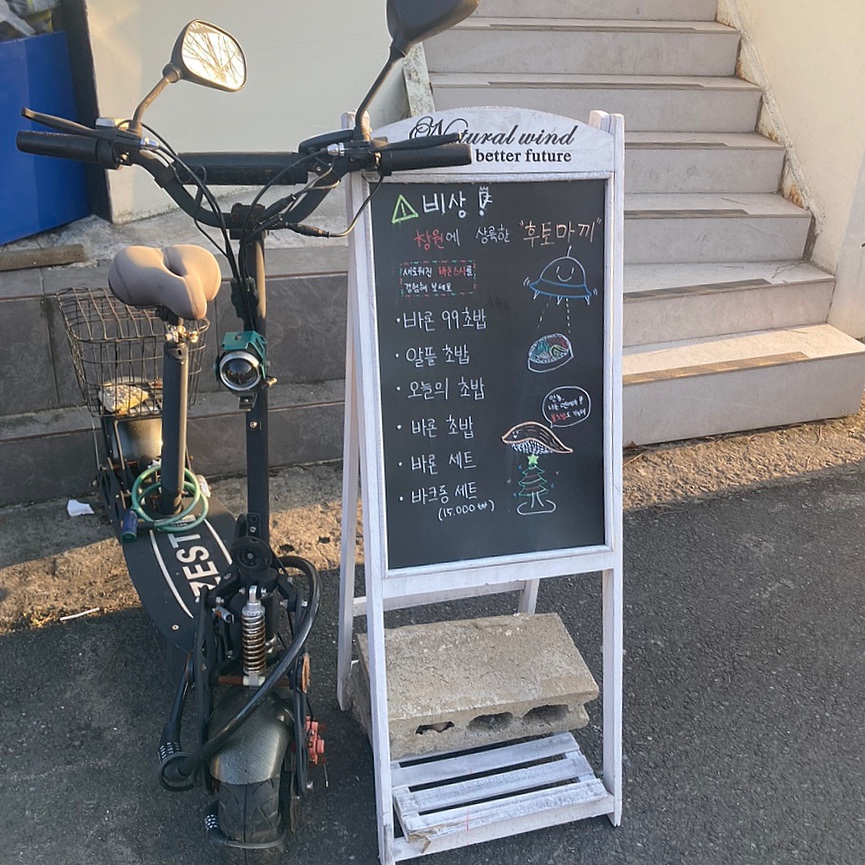 Natural wind
better future
비상!
창원에 상륙한 "후토마끼"
새로워진 바른스시를
경험해 보세요
·바른 99초밥
·알뜰 초밥
·오늘의 초밥
·바른 초밥
·바른 세트
·바크동 세트
(15.000₩)
ZEST